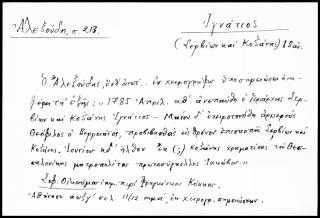 Ἀλεξούδη, σ. 213.
Ἰγνάτιος
(Σερβίων καὶ Κοζάνης) 18αι.
Ὁ Ἀλεξούδης, ἔνθ' ἀνωτ. ἐν χειρογράφῳ ὑποσημειώσει ἀνα-
φέρει τὰ ἑξῆς: "1785 Ἀπριλ. κθ' ἀνεπαύθη ὁ ἱεράρχης Σερ-
βίων καὶ Κοζάνης Ἰγνάτιος - Μαΐου ἐχειροτονήθη ἀρχιερεὺς
Θεόφιλος ὁ Βερροιαῖος, προβιβασθεὶς εἰς θρόνον ἐπισκοπῆς Σερβίων καὶ
Κοζάνης. Ἰουνίου κδ' ἦλθον ἐκ (;) Κοζάνης χρηματίσας τοῦ Θεσ-
σαλονίκης μητροπολίτου πρωτοσύγκελλος Ἰακώβου"
Σοφ. Οἰκονόμου περὶ
Ἀθήνησι σελ. 11/12 ἐν χειρογρ. σημειώσεων.